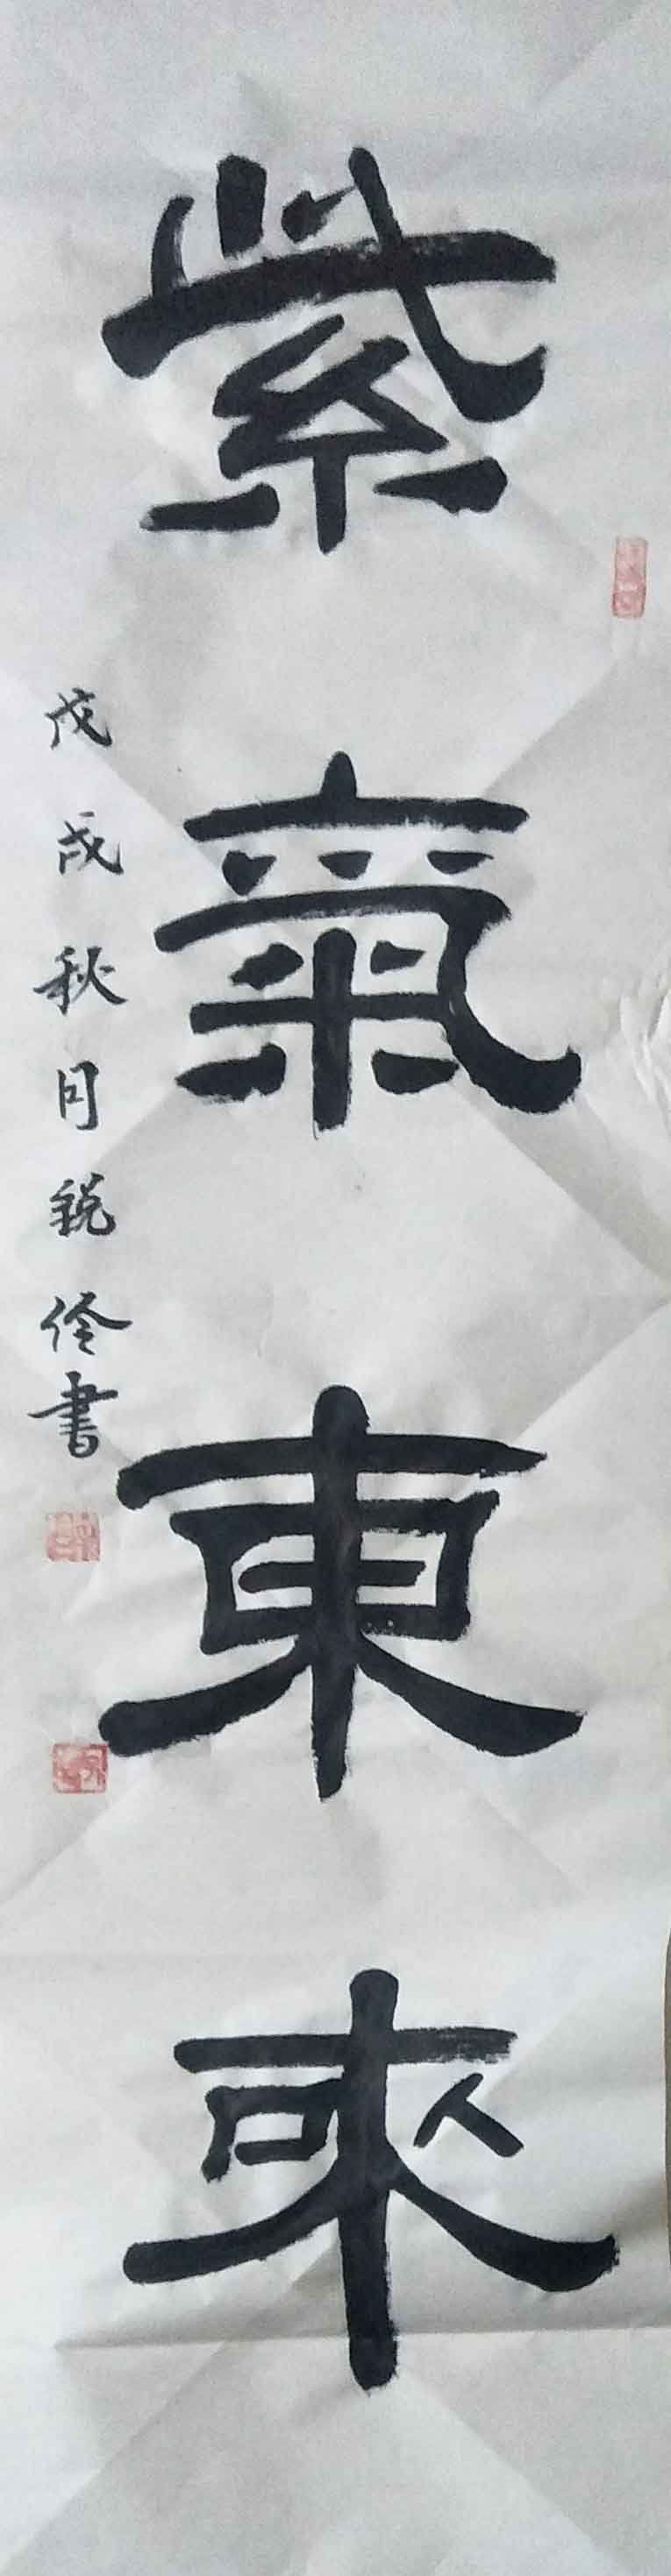 紫氣東來
戊戌秋月銳伶書